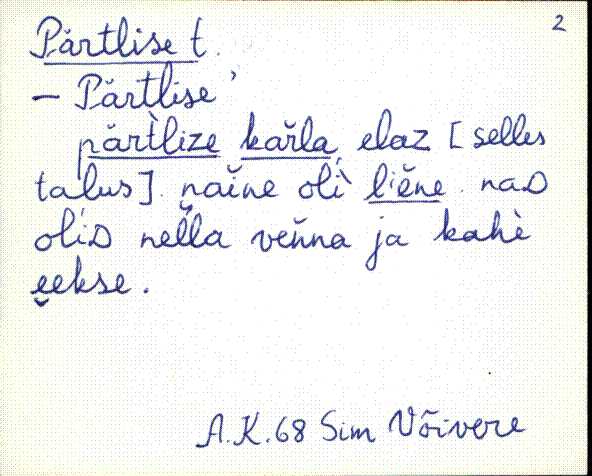 2
Pärtlise t.
— Pärtlise’
pärtlize kaŕla, elaz [selles
talus]. naĭne olì liĕne. nad
oliD nelľa venna ja kahè
eekse.
A.K.68 Sim Võivere